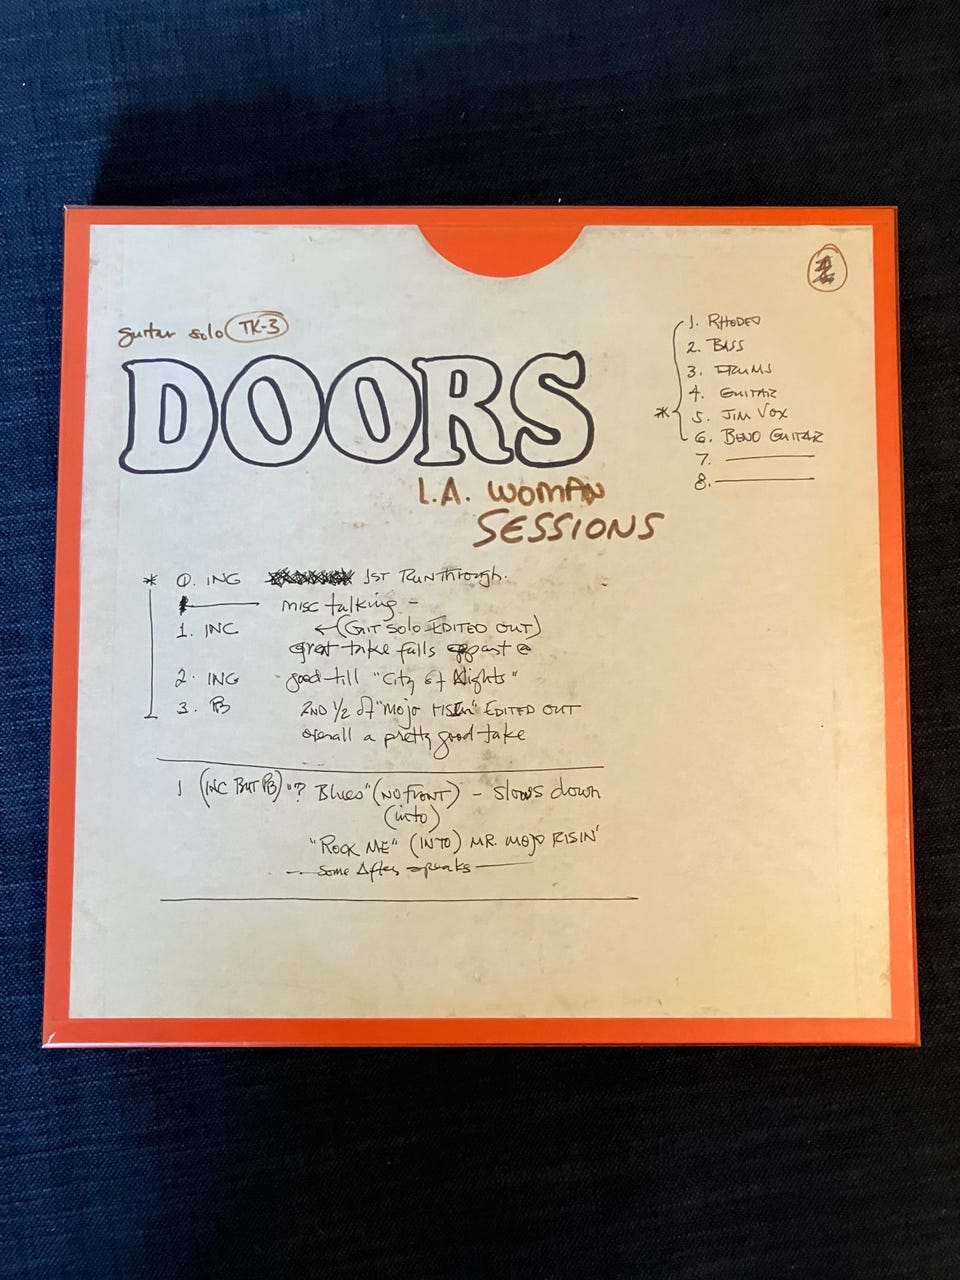 guitar solo TK-3
DOORS
L.A. WOMAN
SESSIONS
1. RHODES
2. BASS
3. DRUMS
4. GUITAR
5. JIM VOX
6. BENO GUITAR
7.
8.
* 0. ING 1ST RUNthrough.
misc talking -
1. INC ←(GIT SOLO EDITED OUT)
great take falls appast @
2. ING good till "City of Nights"
3. PB 2ND 1/2 of "Mojo RISIN" EDITED OUT
overall a pretty good take
1 (INC BUT PB) "? Blues" (NO FRONT) - slows down
(into)
"ROCK ME" (INTO) MR. MOJO RISIN'
— Some After speaks —